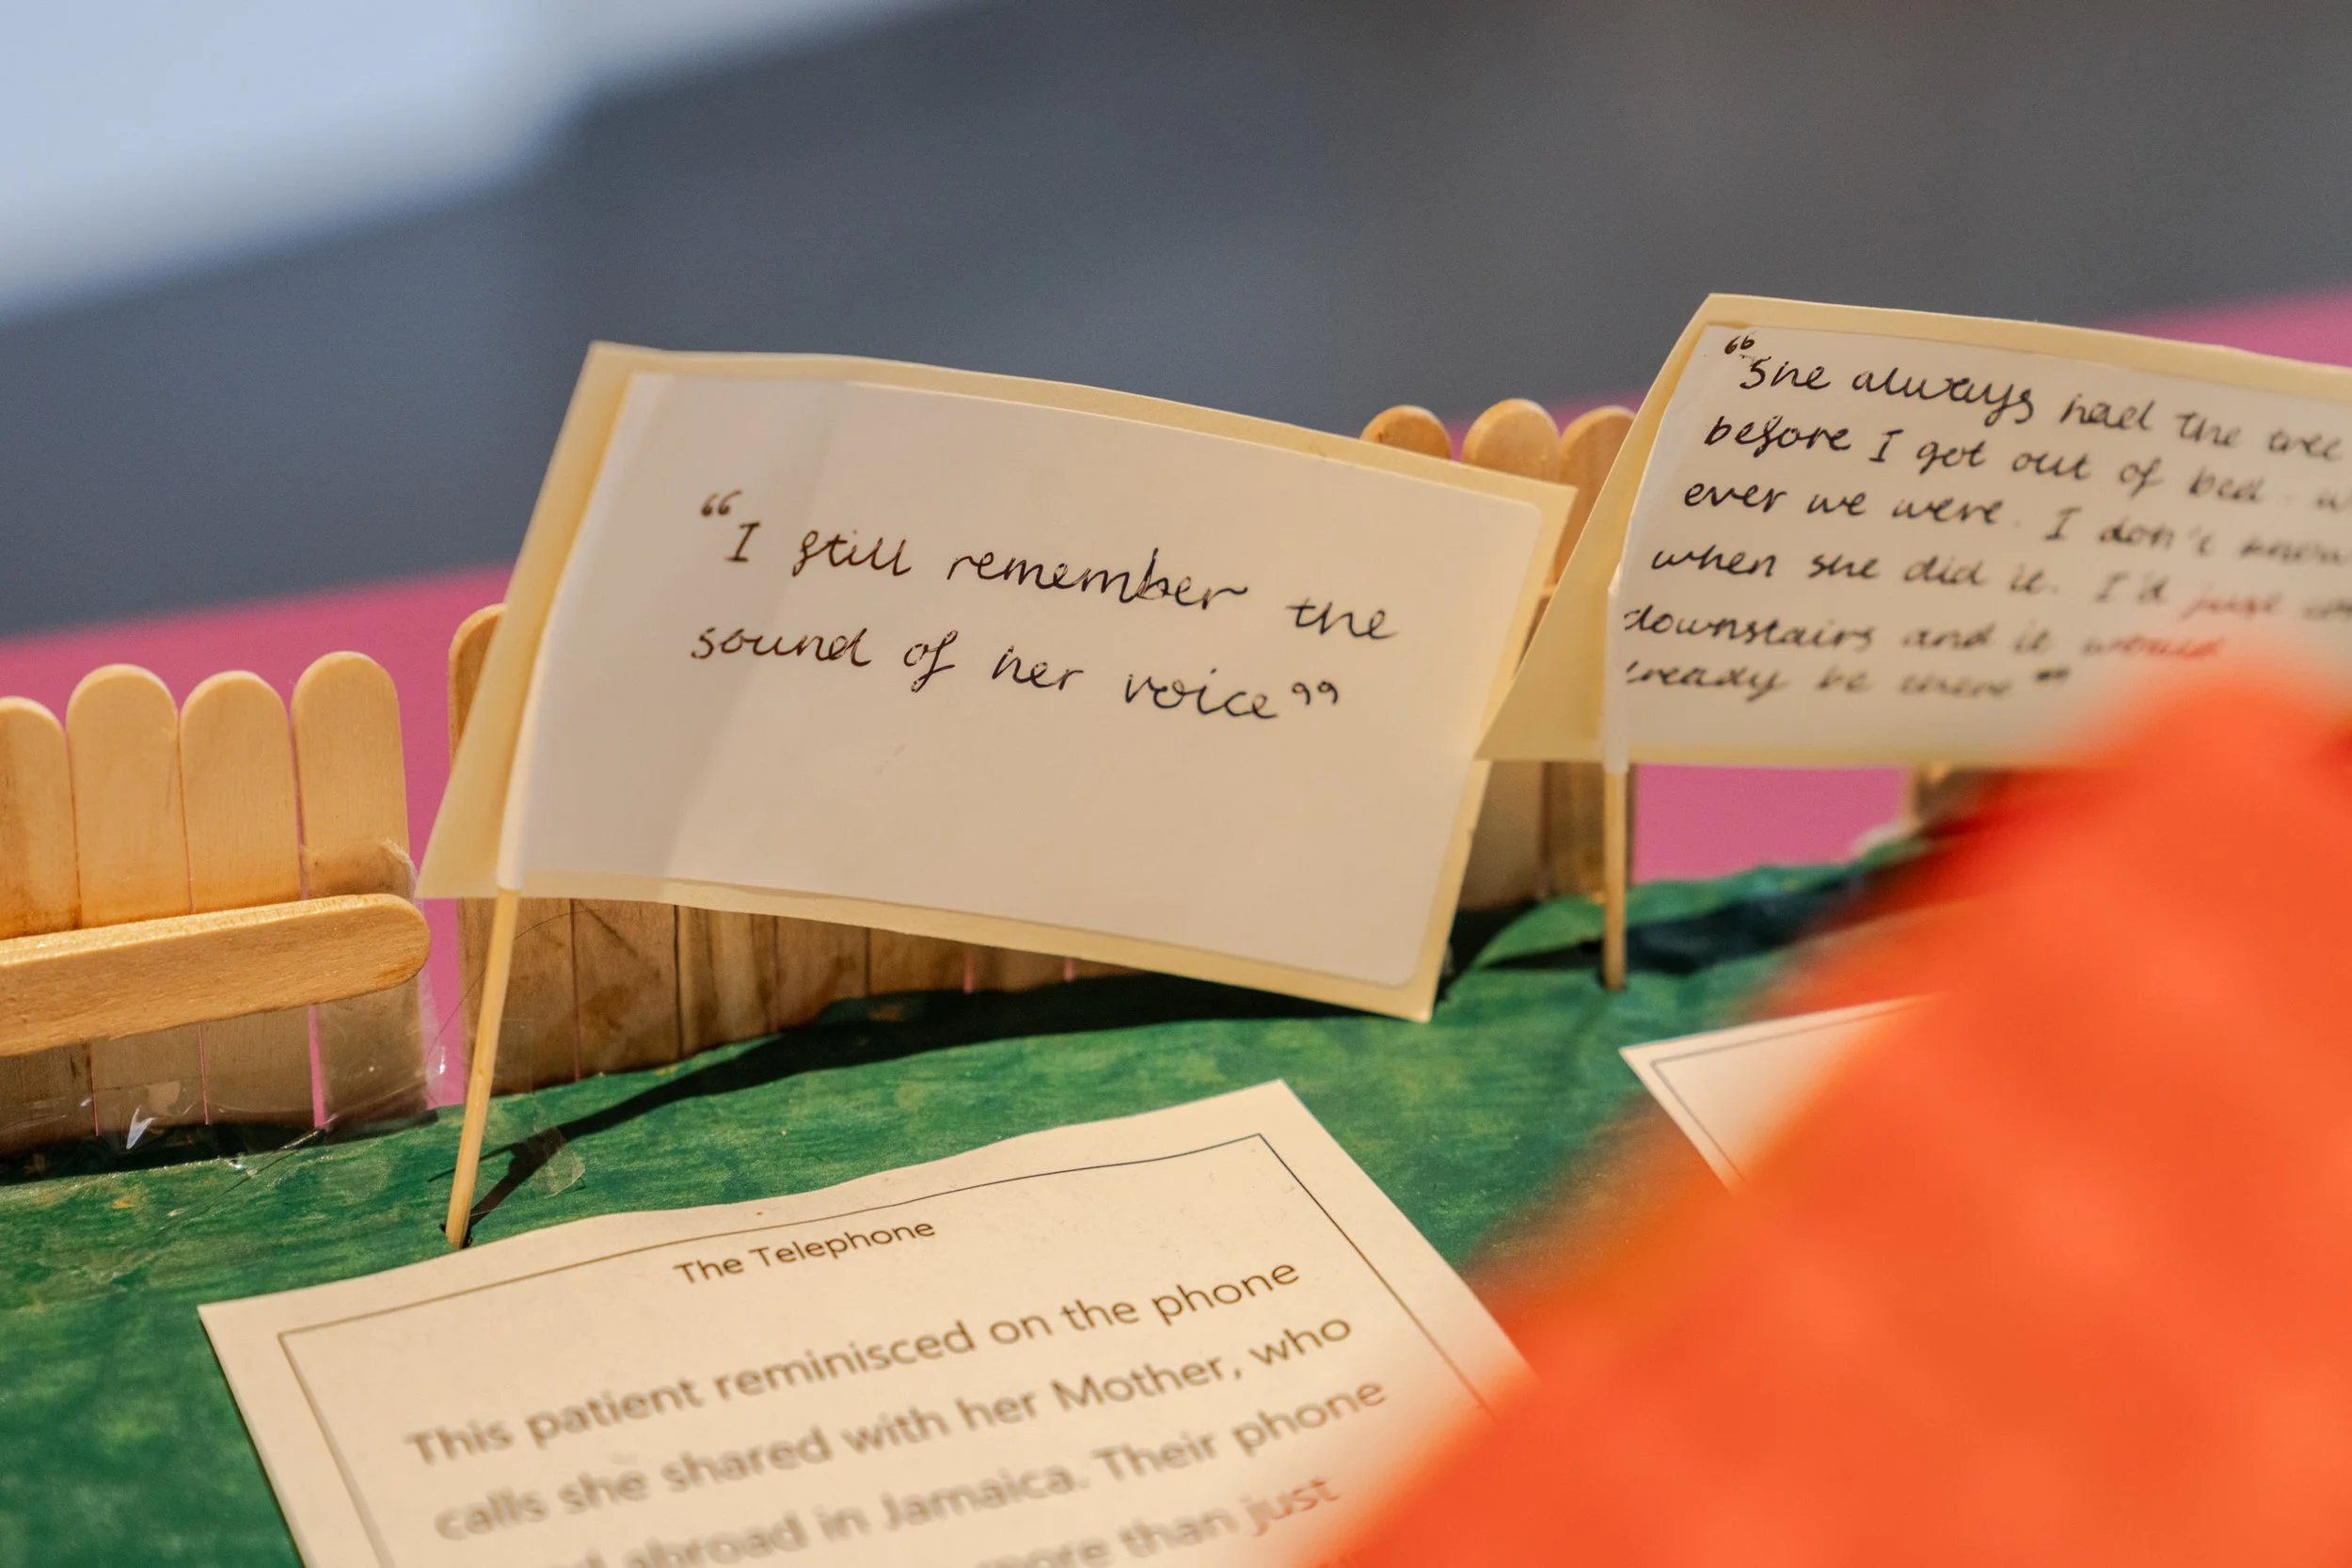 “I still remember the
sound of her voice”
“She always had the tree
before I got out of bed -
ever we were. I don't know
when she did it. I'd just
downstairs and it would
already be there”
The Telephone
This patient reminisced on the phone
calls she shared with her Mother, who
abroad in Jamaica. Their phone
more than just